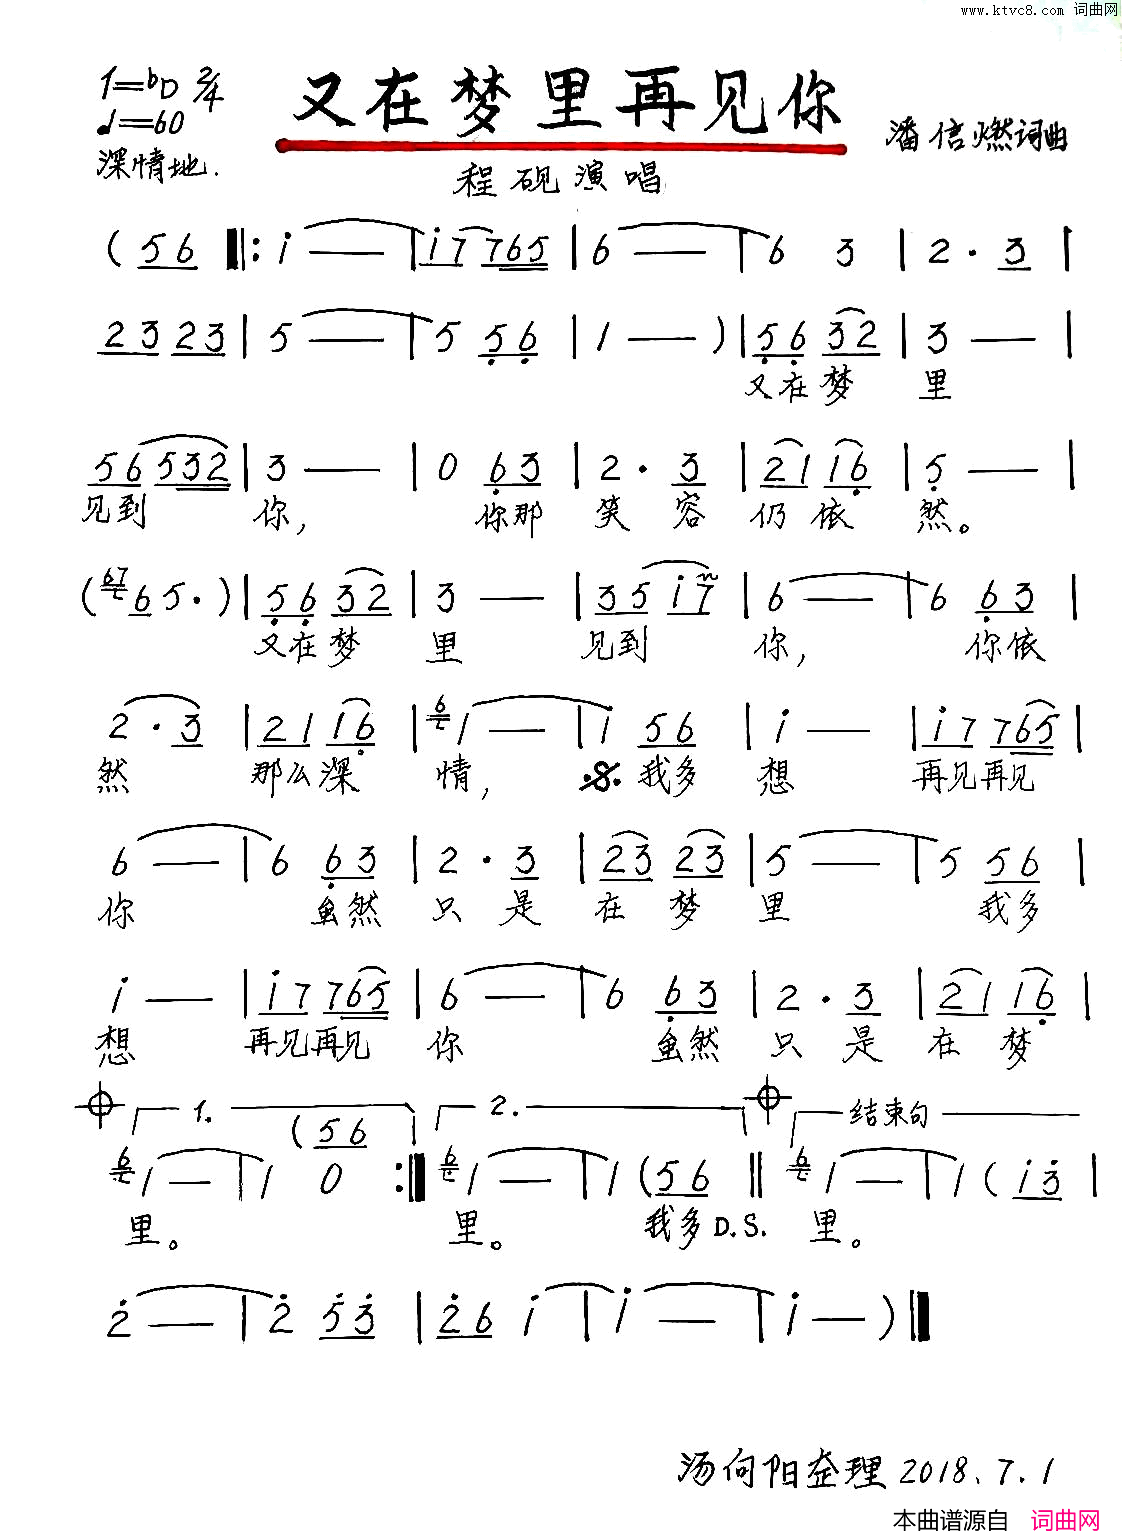 www.ktvc8.com 词曲网
1=♭D 2/4
♩=60
深情地.
又在梦里再见你
潘信燃词曲
程砚演唱
( 5 6 ‖: i — | i 7 7 6 5 | 6 — | 6 3 | 2 · 3 |
2 3 2 3 | 5 — | 5 5 6 | 1 — ) | 5 6 3 2 | 3 — |
又在梦 里
5 6 5 3 2 | 3 — | 0 6 3 | 2 · 3 | 2 1 1 6 | 5 — |
见到 你, 你那 笑 容 仍 依 然。
( 67 6 5 · ) | 5 6 3 2 | 3 — | 3 5 i 7 | 6 — | 6 6 3 |
又在梦 里 见到 你, 你依
2 · 3 | 2 1 1 6 | 6 1 — | i 5 6 | i — | i 7 7 6 5 |
然 那么深 情, 𝄋 我多 想 再见再见
6 — | 6 6 3 | 2 · 3 | 2 3 2 3 | 5 — | 5 5 6 |
你 虽然 只 是 在 梦 里 我多
i — | i 7 7 6 5 | 6 — | 6 6 3 | 2 · 3 | 2 1 1 6 |
想 再见再见 你 虽然 只 是 在 梦
1. 2. 结束句
( 5 6
6 1 — | 1 0 :‖ 6 1 — | 1 ( 5 6 ‖ 6 1 — | 1 ( i 3 |
里。 里。 我多 D.S. 里。
2 — | 2 5 3 | 2 6 i | i — | i — ) ‖
汤向阳整理 2018.7.1
本曲谱源自 词曲网